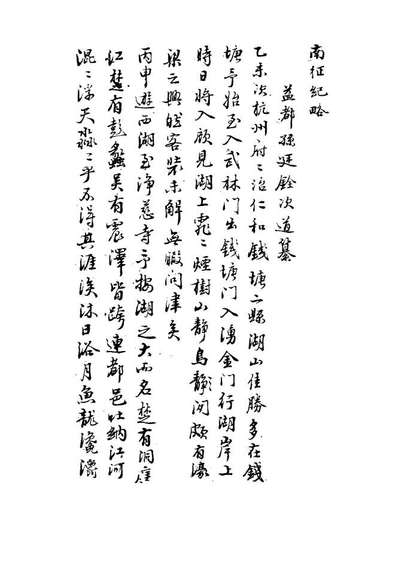 南征紀略
益都孫廷銓次道纂
乙未次杭州府〻治仁和錢塘二縣湖山佳勝多在錢
塘予始至入武林門出錢塘門入湧金門行湖岸上
時日將入顧見湖上霏〻煙樹山靜鳥靜閒頗有濠
梁之興然客裝未解無暇問津矣
丙申遊西湖至淨慈寺予按湖之大而名楚有洞庭
江楚有彭蠡吳有震澤皆跨連都邑吐納江河
混〻浮天淼〻乎不得其涯涘沐日浴月魚龍瀺灂